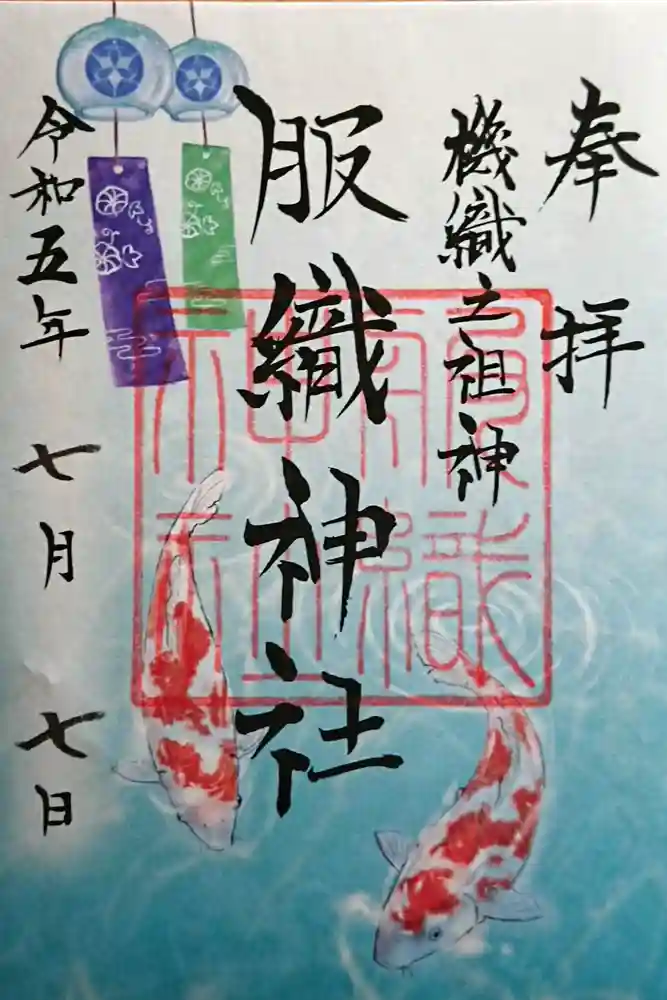 奉拝
機織之祖神
服織神社
令和五年 七月 七日